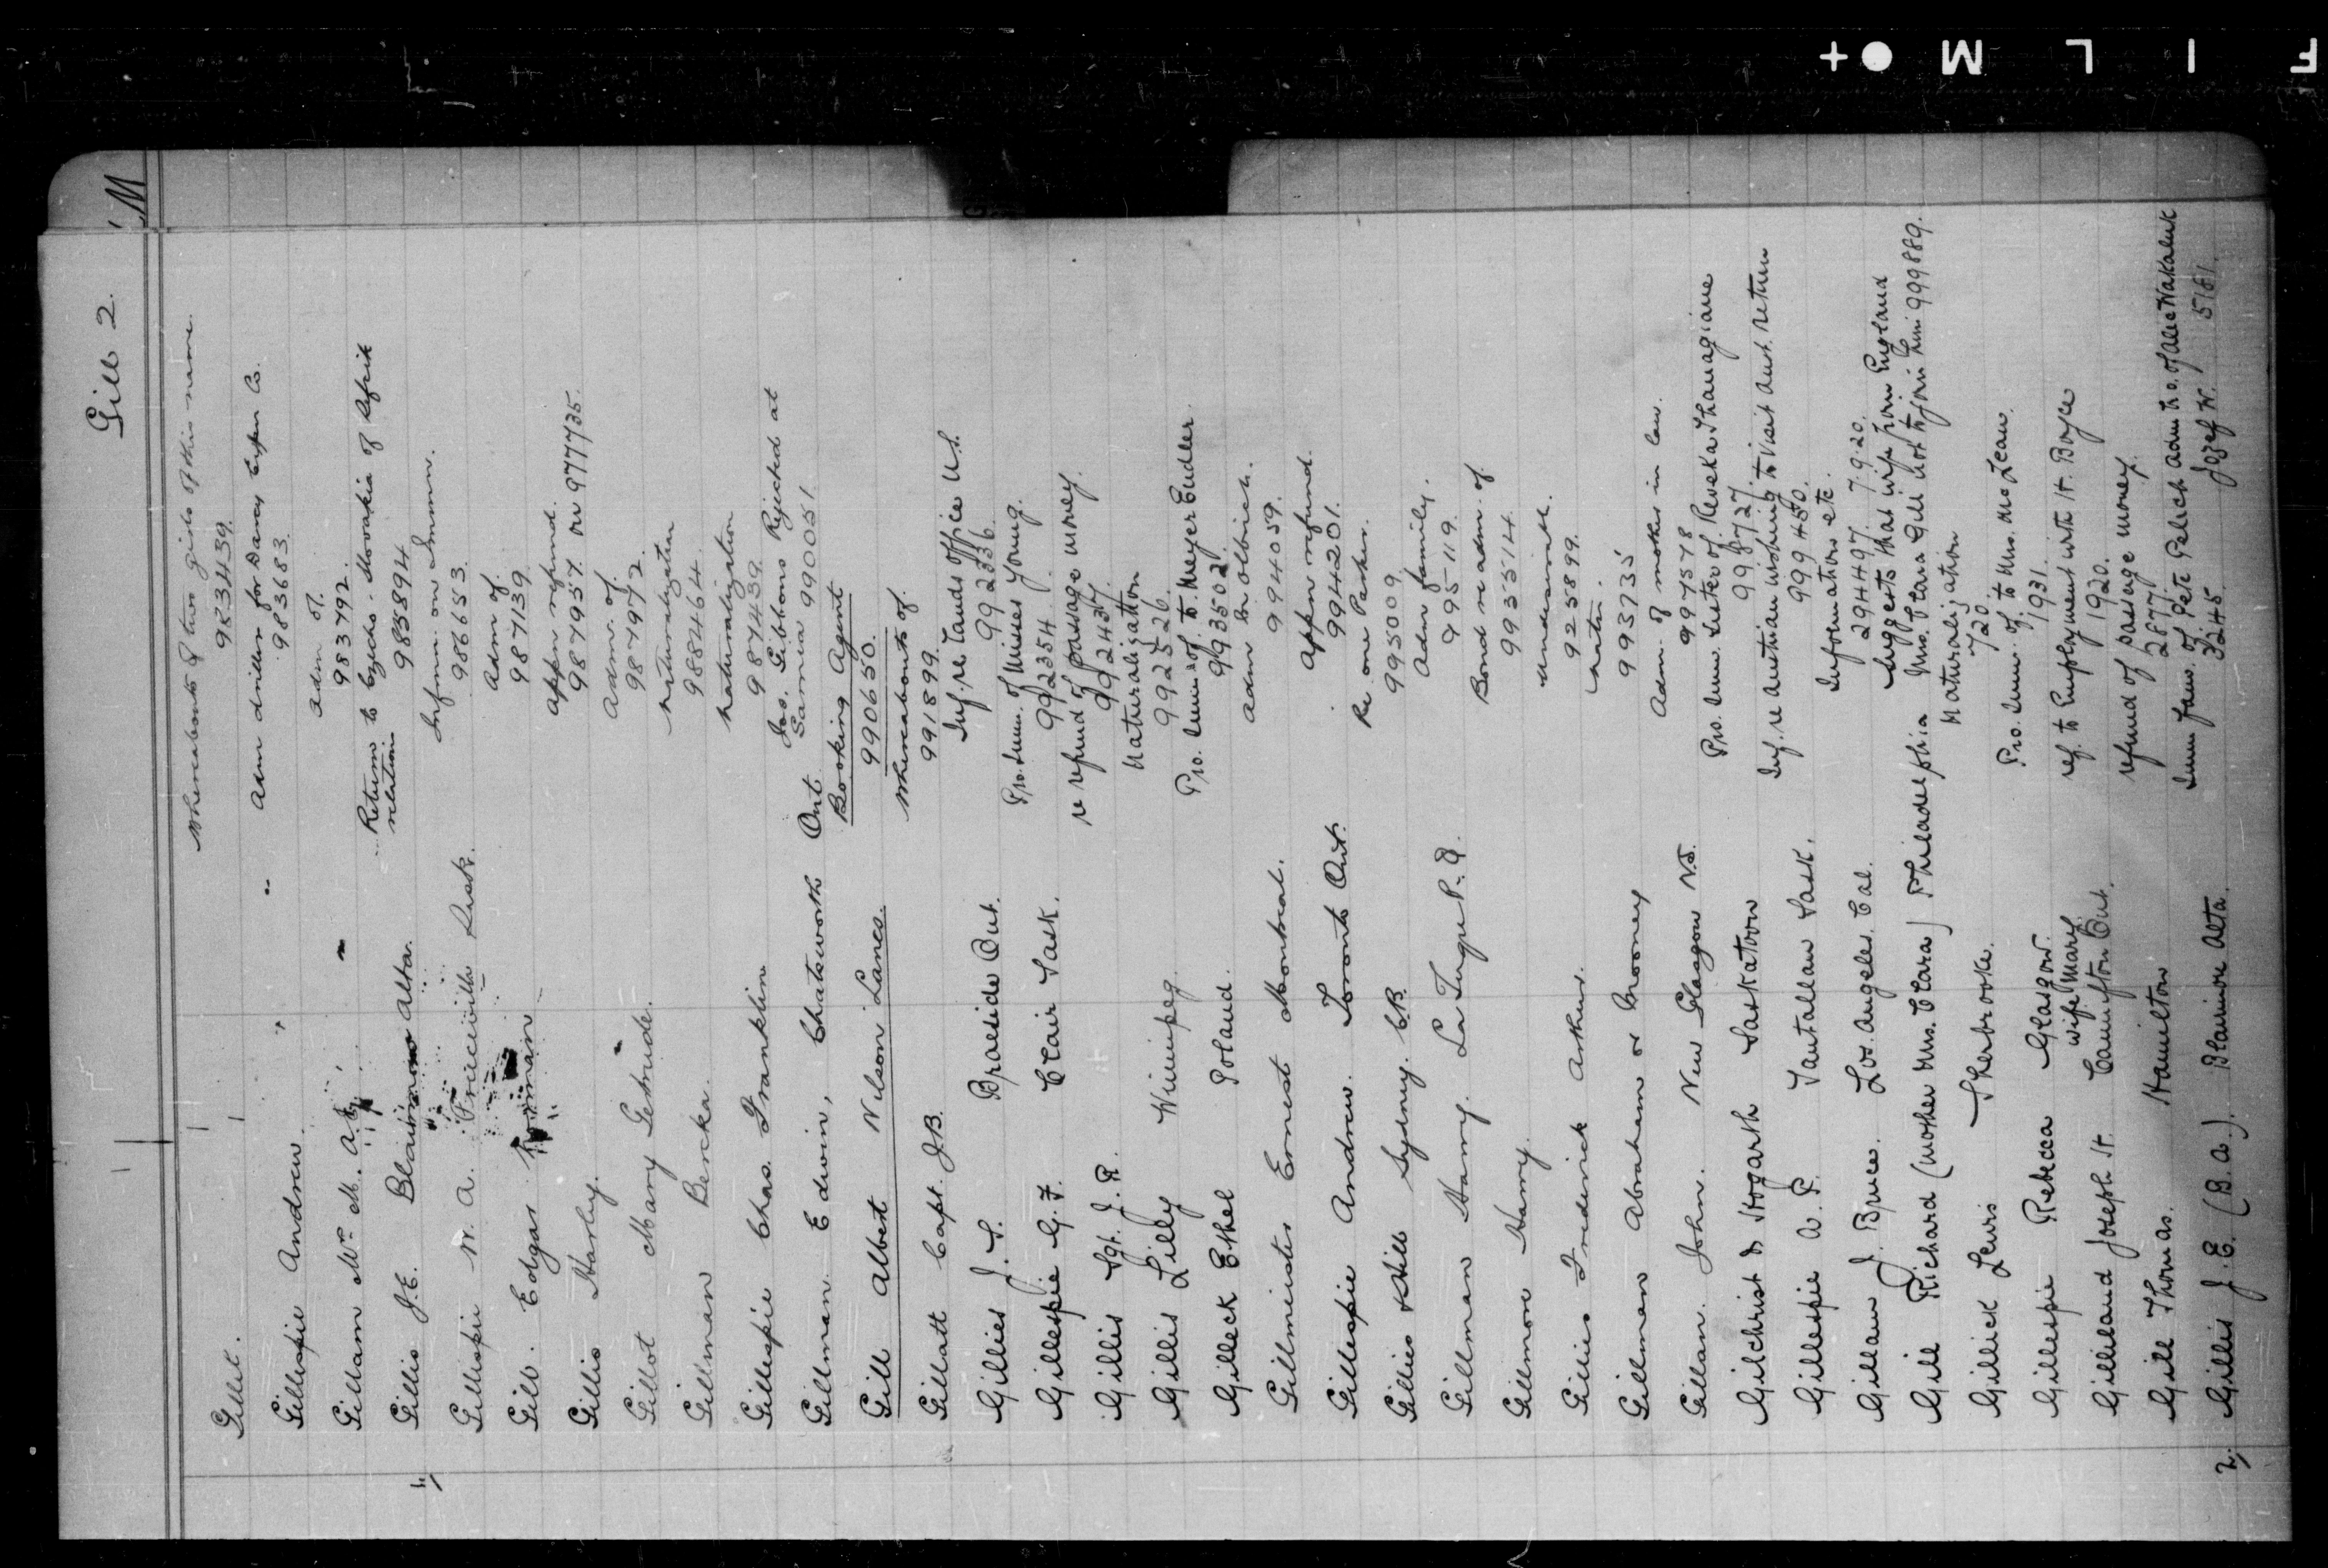 Gill 2.
M
Gillet. Whereabouts of two girls of this name.
983439.
Gillespie Andrew. Adm drillers for Davis Co.
983683.
Gillam Wm M. adm of.
983792.
Gillis J.E. Blairmore Alta. Return to Czecho-Slovakia of
relation 985894
Gillispie W. A. Priceville Sask. Infmn. on Immn.
986653.
Gill. Edgar Norman Adm of.
987139
Gillis Harley. appn refund.
987957 on 977735.
Gillot Mary Gertrude. Adm. of.
987972
Gillman Becka naturalization
988464
Gillespie Chas. Franklin naturalization
987439
Gillman Edwin, Chatsworth Ont Jas. Gibbons Rejected at
Sarnia 990051
Gill Albert Nelson Lanes. Booking Agent
990650.
Gillatt Capt. J.B. Whereabouts of.
991899.
Gillies J. S. Braeside Ont. Inf. re. Lands Office U.S.
992336.
Gillespie G. F. Clair Sask. Pro. Imm. of Misses Young.
992354.
Gillis Sgt. J. R. re refund of passage money.
992437.
Gillis Lilly Winnipeg Naturalization
992526.
Gilleck Ethel Poland. Pro. Imm. of. to Meyer Eudler.
993502.
Gillmeister Ernest Montreal. Adm Olbrich.
994059.
Gillespie Andrew. Toronto Ont. appn refund.
994201.
Gillies & Hill Sydney. C.B. Re one Parker.
995009
Gillman Harry. La Tuque P.Q. Adm family.
995119.
Gillmore Harry. Bond re adm. of
9935514.
Gillies Frederick Arthur. undesirable.
925899.
Gillman Abraham or Mooney natn.
993735
Gillan. John. New Glasgow N.S. Adm. of mother in law.
997578
Gilchrist & Hogarth Saskatoon Pro. Imm. Sister of. Reveka
998727.
Gillespie A. P. Tantallan Sask. Inf. re Austrian wishing to visit Aust. return
999450.
Gillam J. Bruce. Los. Angeles. Cal. Information etc.
294497. 7.9.20.
Gill Richard (mother Mrs. Clara) Philadelphia Suggests that wife from England
Mrs. Clara Gill not to join him 999889.
Gillick Lewis Sherbrooke. Naturalization
720.
Gillespie Rebecca Glasgow. Pro. Imm. of. to Mrs. McLean.
1931.
Gilliland Joseph H. wife Mary. Cannifton Ont. ref. to Employment with H. Boyle
1920.
Gill Thomas. Hamilton refund of passage money.
2877.
2; Gillis J. E. (B.A.) Blairmore Alta. Imm fam. of Pete Pelech adm to. of Alec
3245. Jozef W. 5161.
F I L M